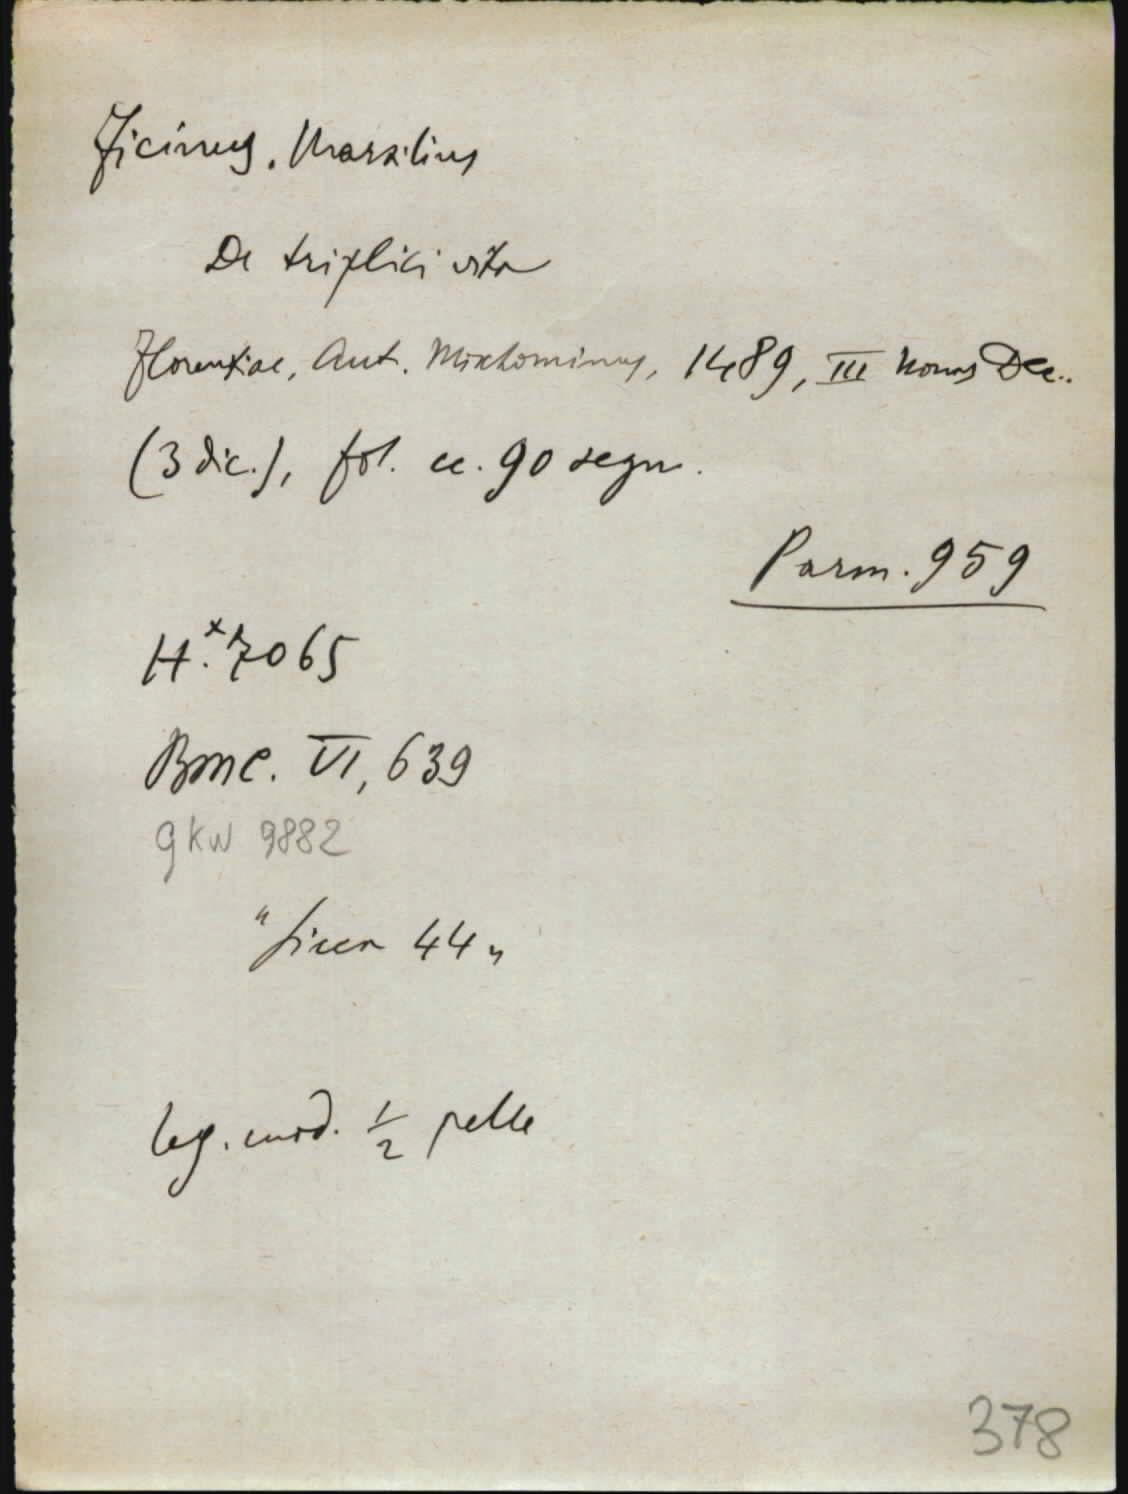 Ficinus, Marsilius
De triplici vita
Florentiae, Ant. Mischominus, 1489, III nonas Dec..
(3 dic.), fol. cc. 90 segn.
Parm. 959
H.* 7065
BMC. VI, 639
GKW 9882
"ficin 44"
leg. mod. 1/2 pelle
378